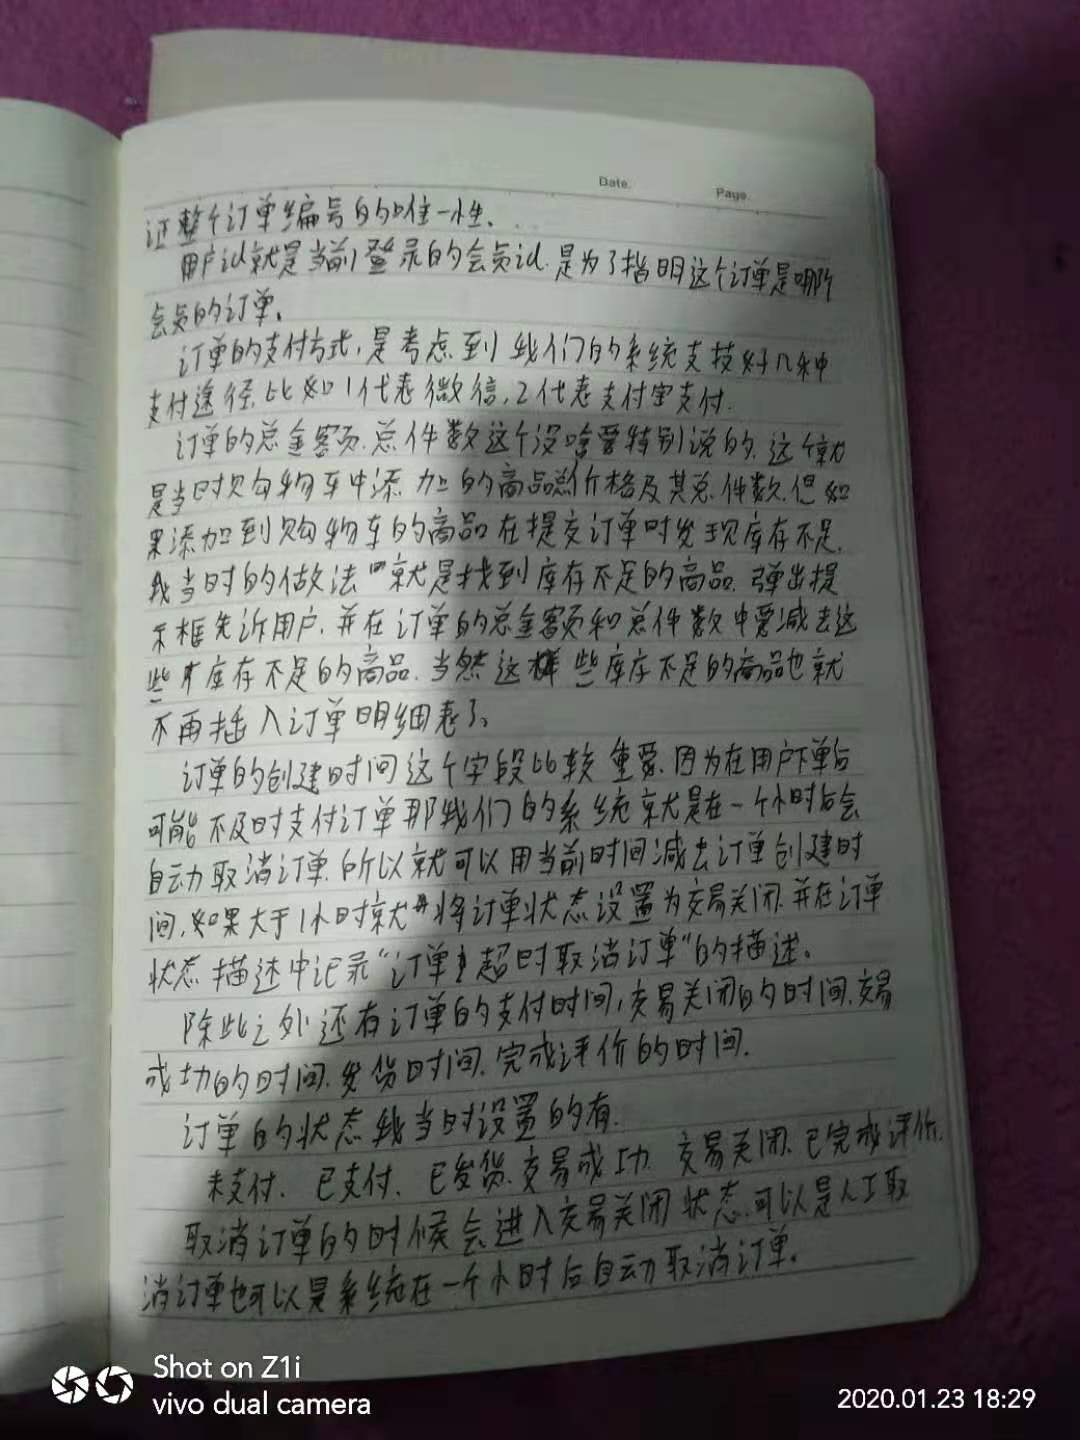 Date.
Page.
证整个订单编号的唯一性、
用户id就是当前登录的会员id.是为了指明这个订单是哪个
会员的订单。
订单的支付方式,是考虑到我们的系统支技好几种
支付途径.比如1代表微信,2代表支付宝支付.
订单的总金额.总件数这个没啥要特别说的.这个就
是当时购物车中添加的商品总价格及其总件数.但如
果添加到购物车的商品在提交订单时发现库存不足.
我当时的做法就是找到库存不足的商品.弹出提
示框告诉用户.并在订单的总金额和总件数中要减去这
些库存不足的商品.当然这样些库存不足的商品也就
不再插入订单明细表了。
订单的创建时间这个字段比较重要.因为在用户下单后
可能不及时支付订单那我们的系统就是在一个小时后会
自动取消订单.所以就可以用当前时间减去订单创建时
间,如果大于1小时就将订单状态设置为交易关闭.并在订单
状态描述中记录“订单超时取消订单”的描述。
除此之外还有订单的支付时间,交易关闭的时间.交易
成功的时间.发货时间.完成评价的时间.
订单的状态我当时设置的有.
未支付、已支付、已发货.交易成功.交易关闭.已完成评价.
取消订单的时候会进入交易关闭状态.可以是人工取
消订单也可以是系统在一个小时后自动取消订单。
Shot on Z1i
vivo dual camera
2020.01.23 18:29